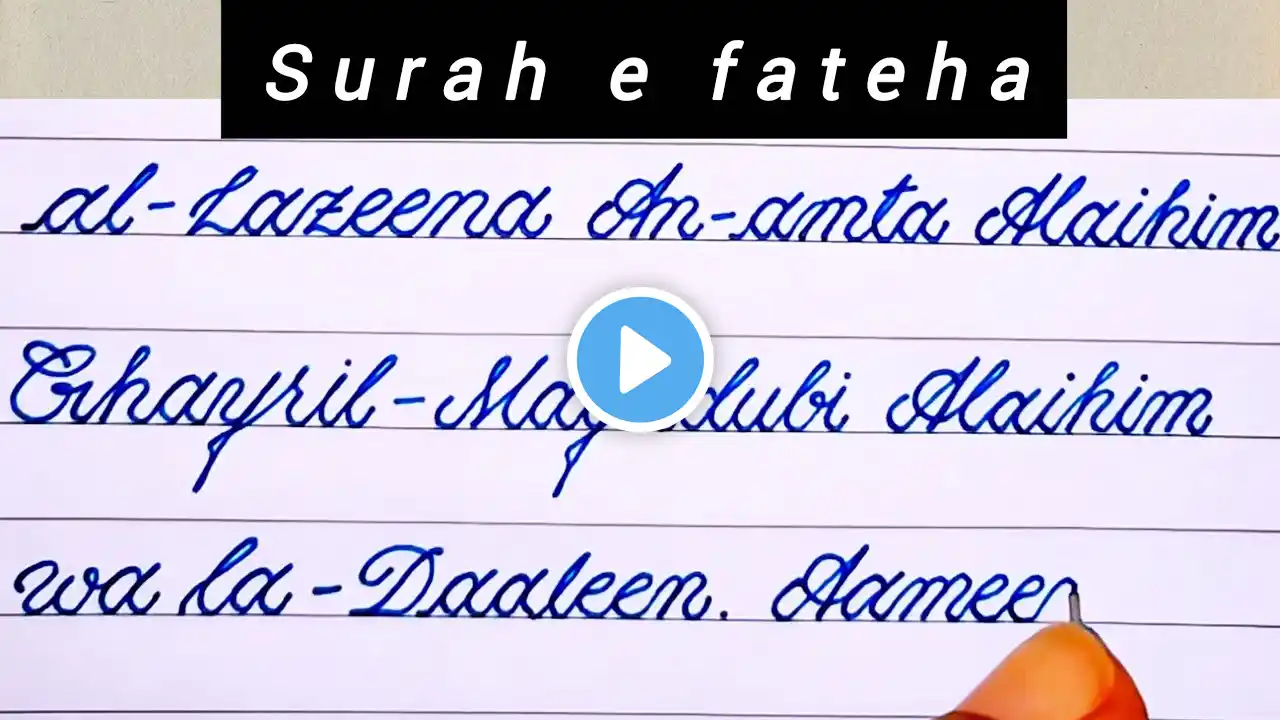 Surah e fateha
al-Lazeena An-amta Alaihim
Ghayril-Mag dubi Alaihim
wa la-Daaleen. Aameen